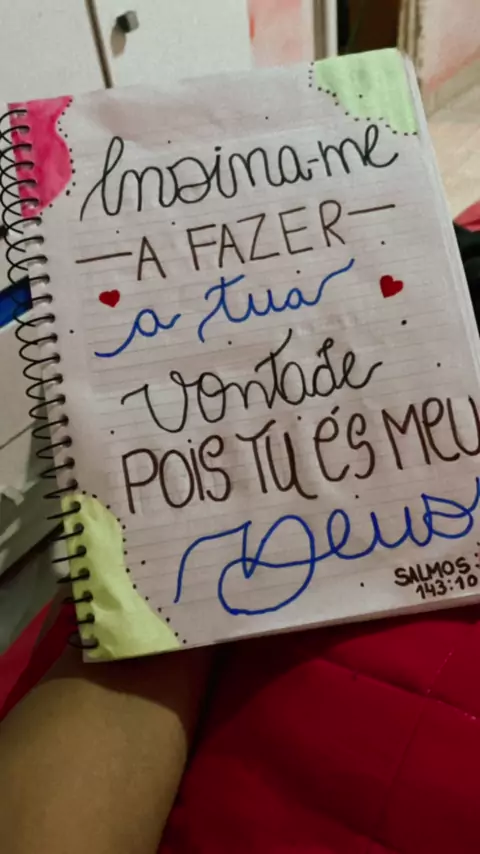 Ensina-me
— A FAZER —
a tua
vontade
POIS TU ÉS MEU
Deus
SALMOS:
143:10